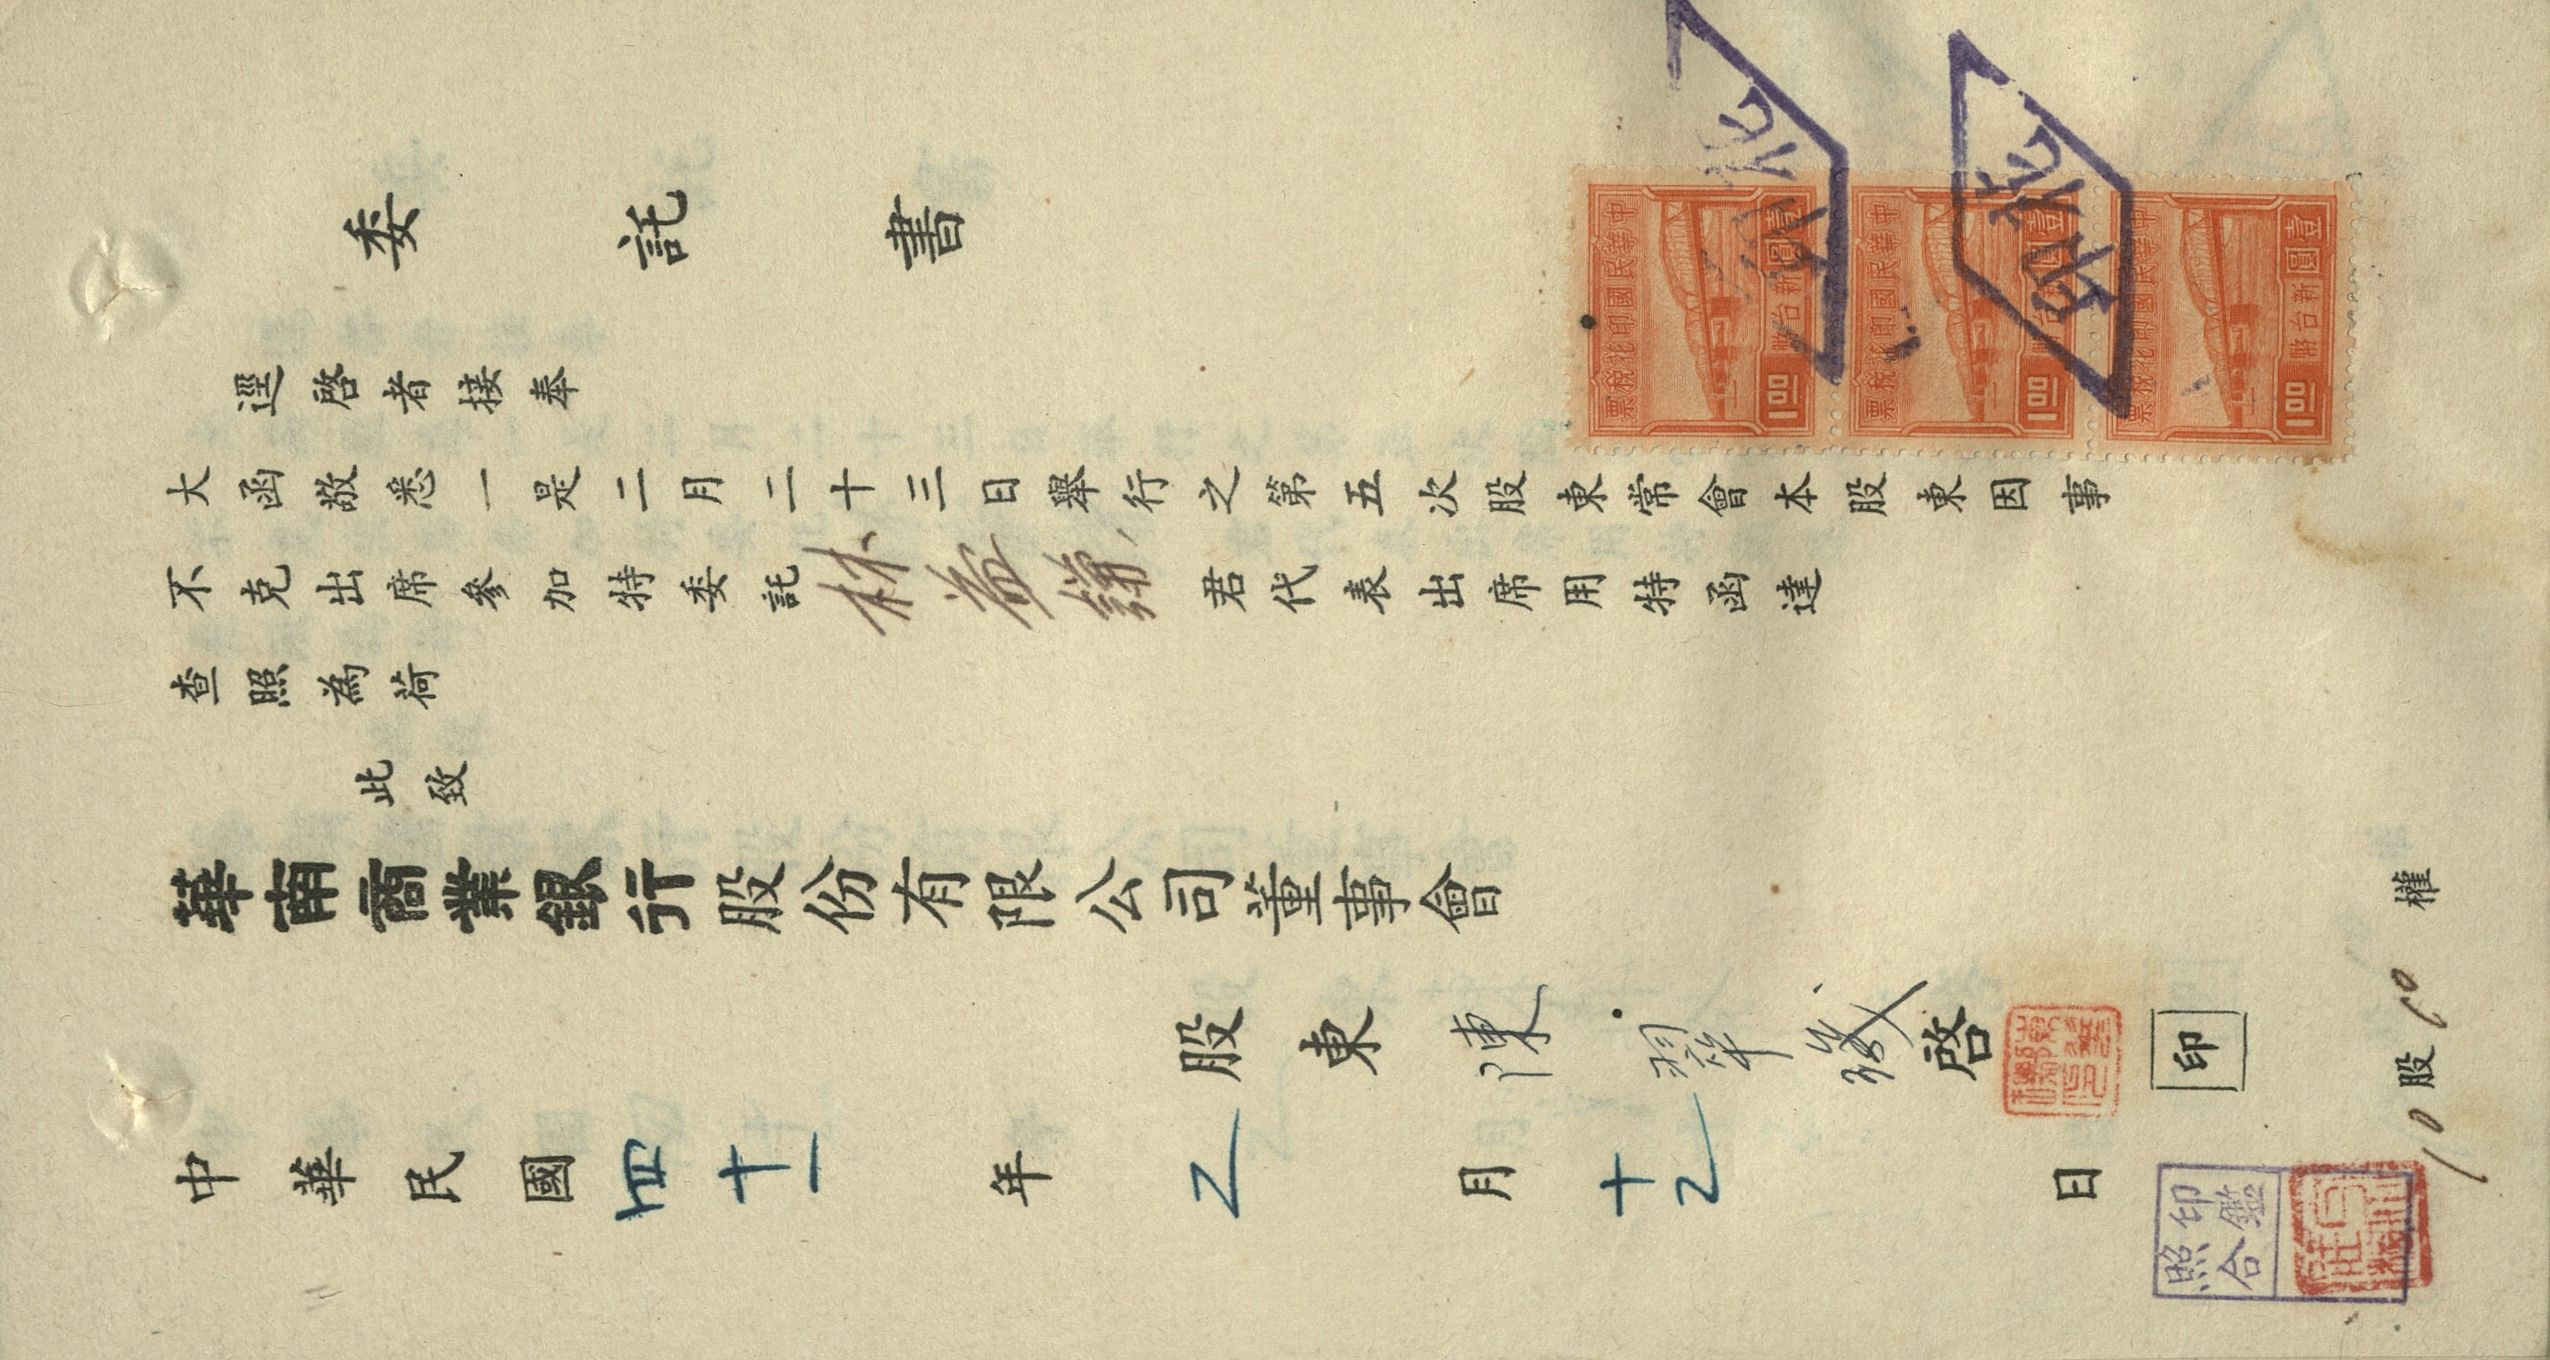 委託書
逕啓者接奉
大函敬悉一是二月二十三日舉行之第五次股東常會本股東因事
不克出席參加特委託林益謙君代表出席用特函達
查照為荷
此致
華南商業銀行股份有限公司董事會
股東陳翠啓
印
中華民國四十一年乙月十乙日
10股10權
印鑑
照合
中華民國印花稅票
壹圓
新台幣
1.00
中華民國印花稅票
壹圓
新台幣
1.00
中華民國印花稅票
壹圓
新台幣
1.00